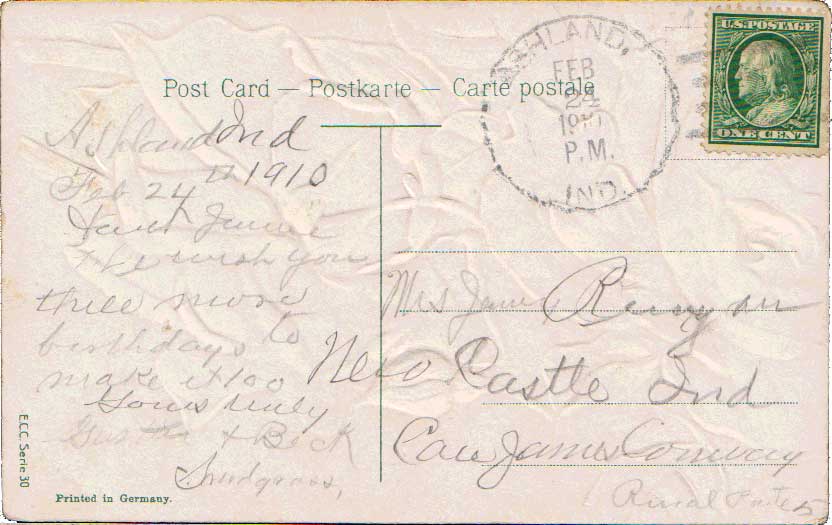 Post Card — Postkarte — Carte postale
ASHLAND,
FEB
24
1910
P.M.
IND.
U.S. POSTAGE
ONE CENT
Ashland Ind
Feb 24th 1910
Aunt Jamie
We wish you
three more
birthdays to
make it 100
Yours truly
& Beck
Snodgrass,
Mrs Jane Runyan
New Castle Ind
Care James Conway
Rural Route 5
E.C.C. Serie 30
Printed in Germany.